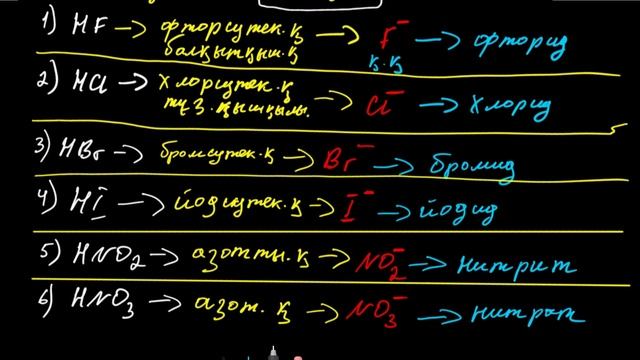 1) HF → фторсутек.қ → F⁻ → фторид
балқытқыш.қ қ.қ
2) HCl → хлорсутек.қ → Cl⁻ → хлорид
тұз.қышқылы.
3) HBr → бромсутек.қ → Br⁻ → бромид
4) HI → йодсутек.қ → I⁻ → йодид
5) HNO₂ → азотты.қ → NO₂⁻ → нитрит
6) HNO₃ → азот.қ → NO₃⁻ → нитрат